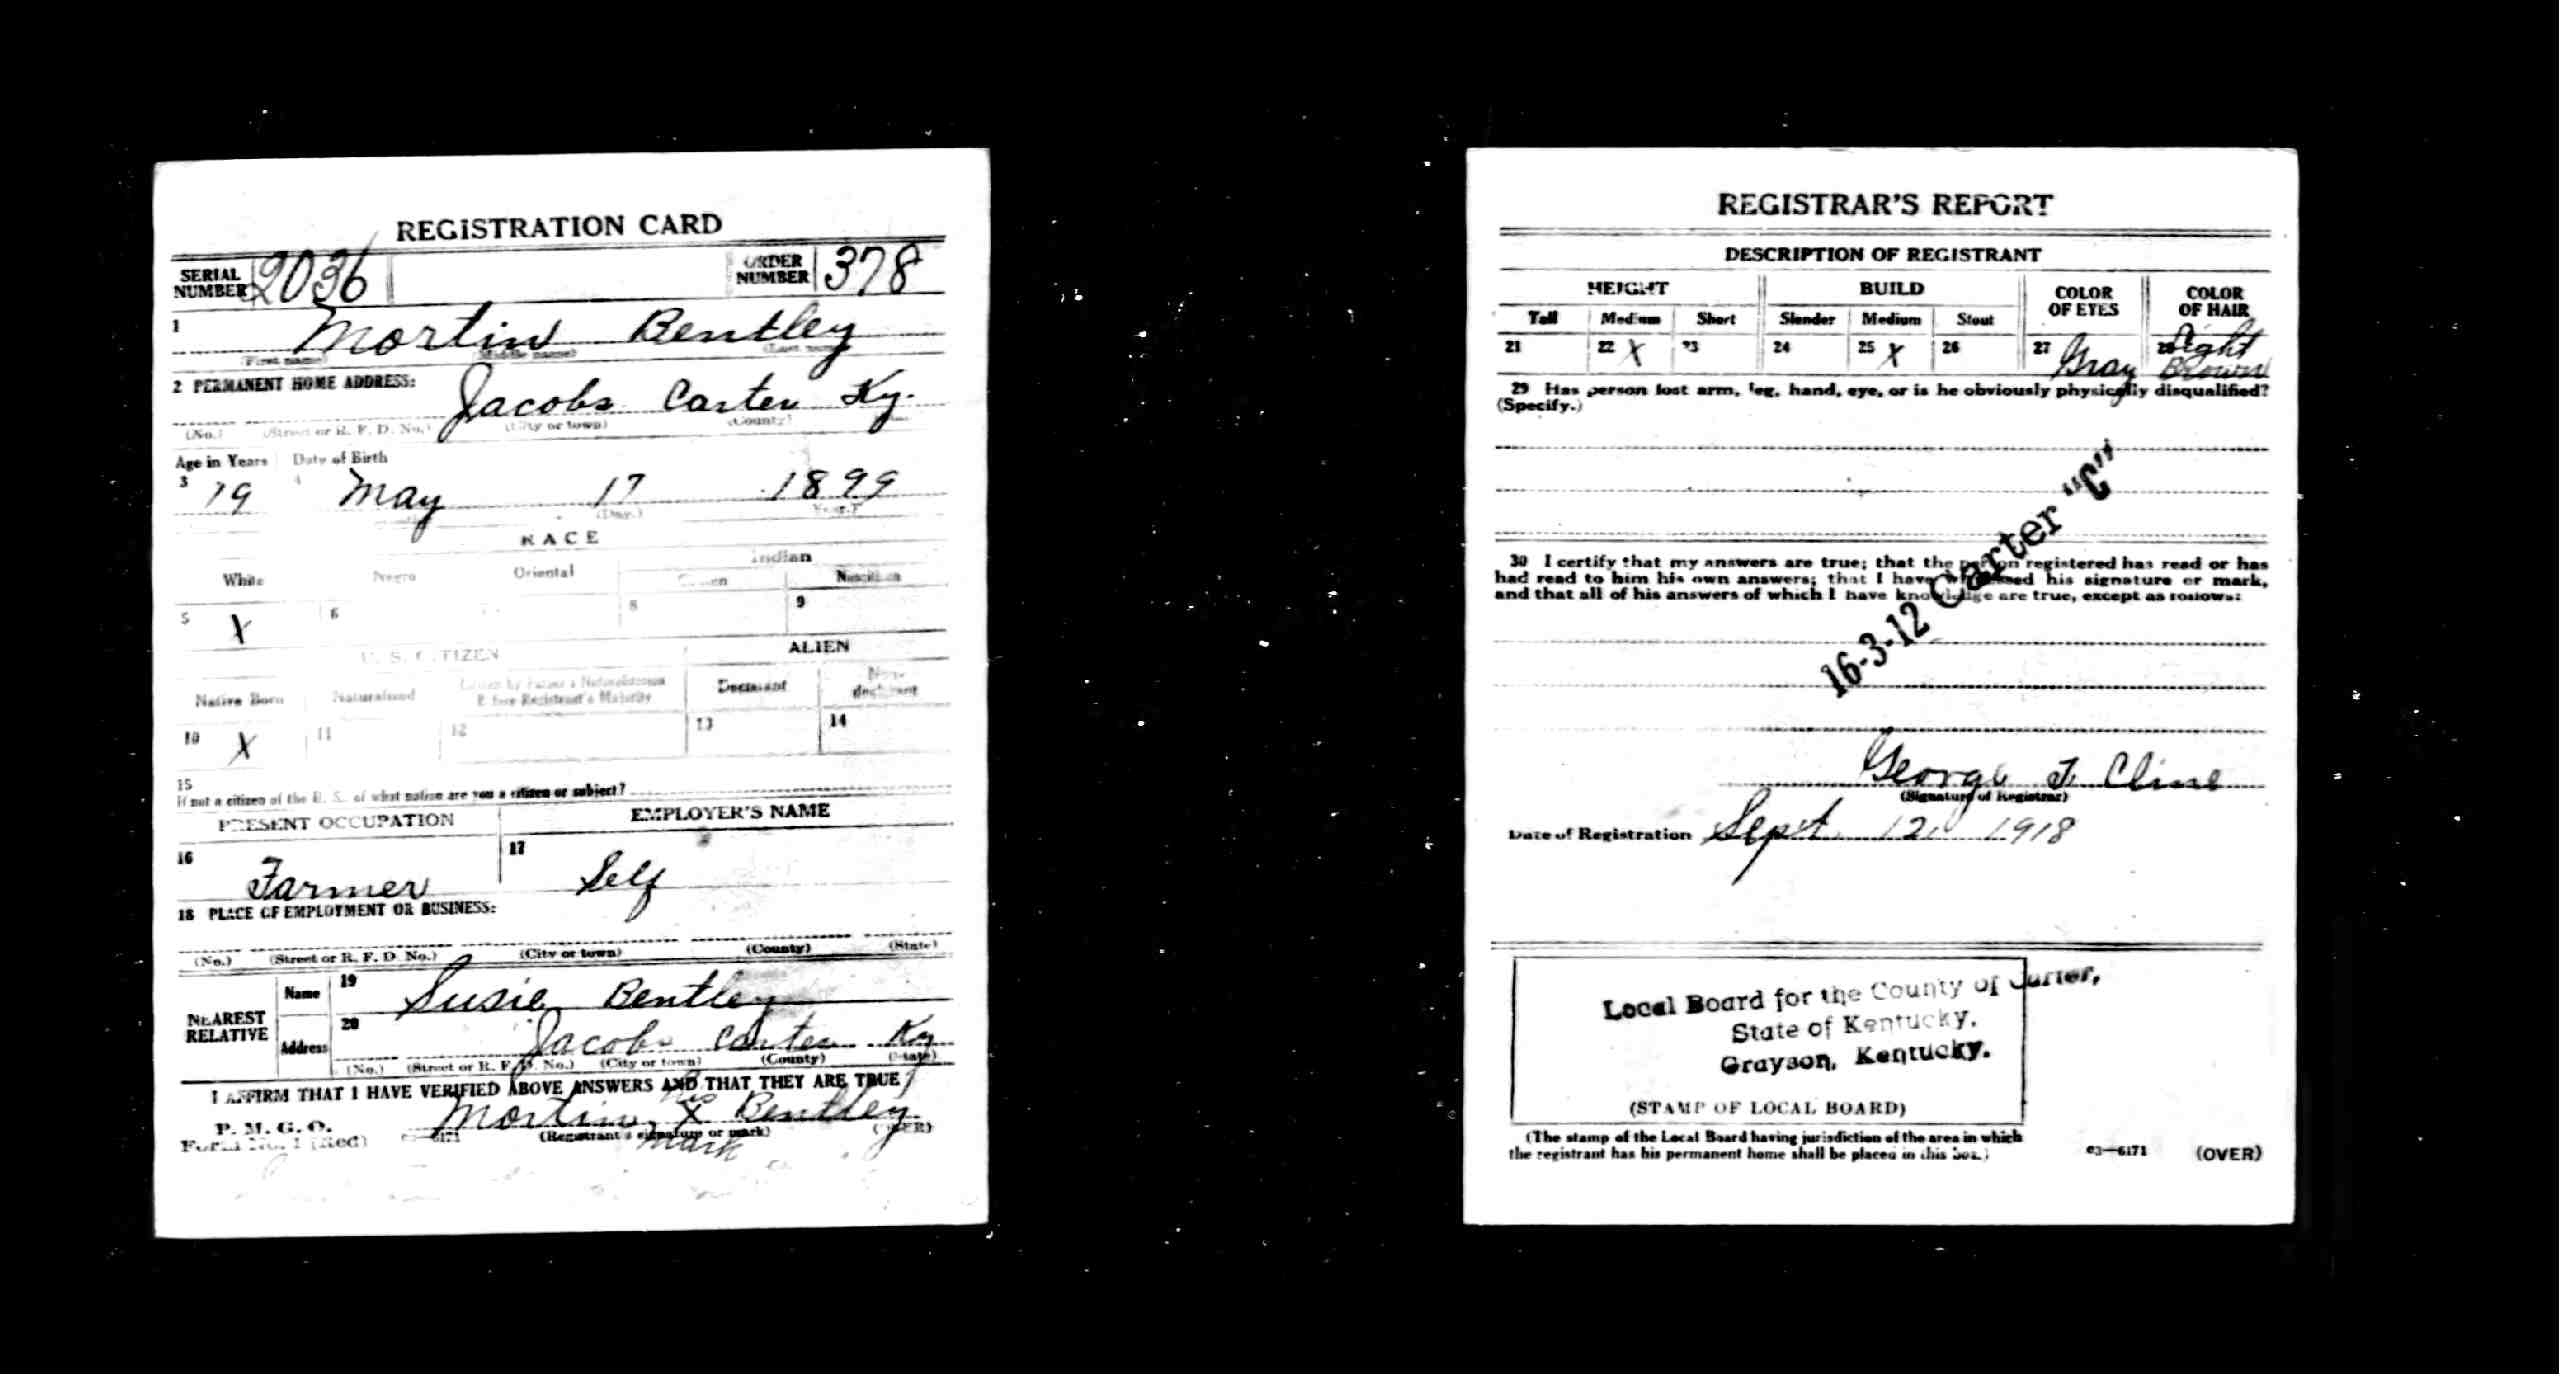 REGISTRATION CARD
SERIAL NUMBER 2036 ORDER NUMBER 378
1 Mortin Bentley
(First name) (Middle name) (Last name)
2 PERMANENT HOME ADDRESS:
Jacobs Carter Ky.
(No.) (Street or R. F. D. No.) (City or town) (County)
Age in Years Date of Birth
3 19 4 May 17 1899
(Day.) (Year.)
RACE
White Negro Oriental Indian
Citizen Noncitizen
5 X 6 8 9
U. S. CITIZEN ALIEN
Native Born Naturalized Citizen by Father's Naturalization Before Registrant's Majority Declarant Non-declarant
10 X 11 12 13 14
15
If not a citizen of the U. S., of what nation are you a citizen or subject?
PRESENT OCCUPATION EMPLOYER'S NAME
16 Farmer 17 Self
18 PLACE OF EMPLOYMENT OR BUSINESS:
(No.) (Street or R. F. D. No.) (City or town) (County) (State)
NEAREST RELATIVE
Name 19 Susie Bentley
Address 20 Jacobs Carter Ky
(No.) (Street or R. F. D. No.) (City or town) (County) (State)
I AFFIRM THAT I HAVE VERIFIED ABOVE ANSWERS AND THAT THEY ARE TRUE
his
P. M. G. O. Mortin X Bentley
Form No. 1 (Red) 03—6171 (Registrant's signature or mark) (OVER)
mark
REGISTRAR'S REPORT
DESCRIPTION OF REGISTRANT
HEIGHT BUILD COLOR OF EYES COLOR OF HAIR
Tall Medium Short Slender Medium Stout
21 22 X 23 24 25 X 26 27 Gray 28 Light Brown
29 Has person lost arm, leg, hand, eye, or is he obviously physically disqualified?
(Specify.)
30 I certify that my answers are true; that the person registered has read or has
had read to him his own answers; that I have witnessed his signature or mark,
and that all of his answers of which I have knowledge are true, except as follows:
16-3-12 Carter "C"
George T. Cline
(Signature of Registrar)
Date of Registration Sept. 12, 1918
Local Board for the County of Carter,
State of Kentucky.
Grayson, Kentucky.
(STAMP OF LOCAL BOARD)
(The stamp of the Local Board having jurisdiction of the area in which
the registrant has his permanent home shall be placed in this box.)
03—6171 (OVER)